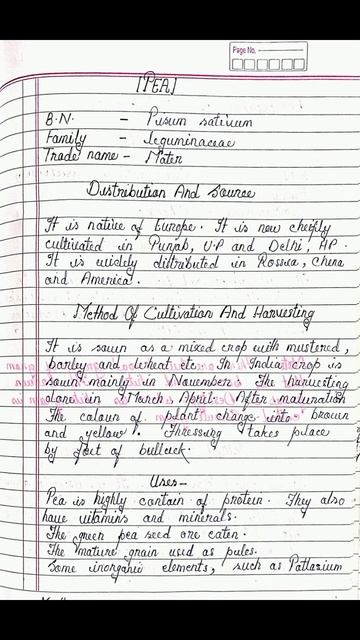 Page No.
[PEA]
B.N. - Pisum sativum
Family - leguminaceae
Trade name - Mater
Distribution And Source
It is native of Europe. It is now cheifly
cultivated in Punjab, U.P and Delhi, HP.
It is widely distributed in Rossia, China
and America.
Method Of Cultivation And Harvesting
It is sawn as a mixed crop with mustered,
barley and wheat etc. In India crop is
sawn mainly in November. The harvesting
done in March, April. After maturation
The colour of plant change into brown
and yellow. Thressing takes place
by foot of bulluck.
Uses-
Pea is highly contain of protein. They also
have vitamins and minerals.
The green pea seed are eaten.
The mature grain used as pules.
Some inorganic elements, such as Pottasium